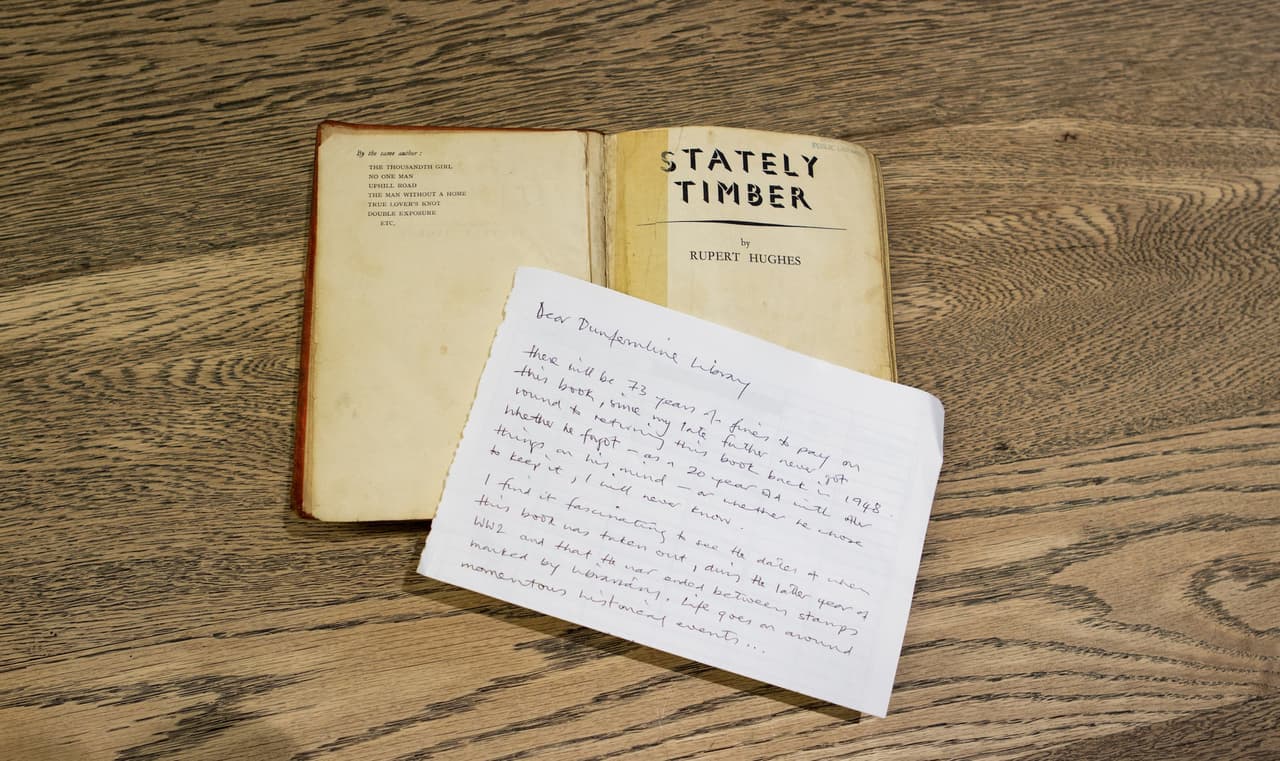 By the same author :
THE THOUSANDTH GIRL
NO ONE MAN
UPHILL ROAD
THE MAN WITHOUT A HOME
TRUE LOVER'S KNOT
DOUBLE EXPOSURE
ETC.
STATELY
TIMBER
by
RUPERT HUGHES
Dear Dunfermline Library
there will be 73 years of fines to pay on
this book, since my late father never got
round to returning this book back in 1948.
Whether he forgot - as a 20 year old with other
things on his mind - or whether he chose
to keep it, I will never know.
I find it fascinating to see the dates of when
this book was taken out, during the latter year of
WW2 and that the war ended between stamps
marked by librarians. Life goes on around
momentous historical events...